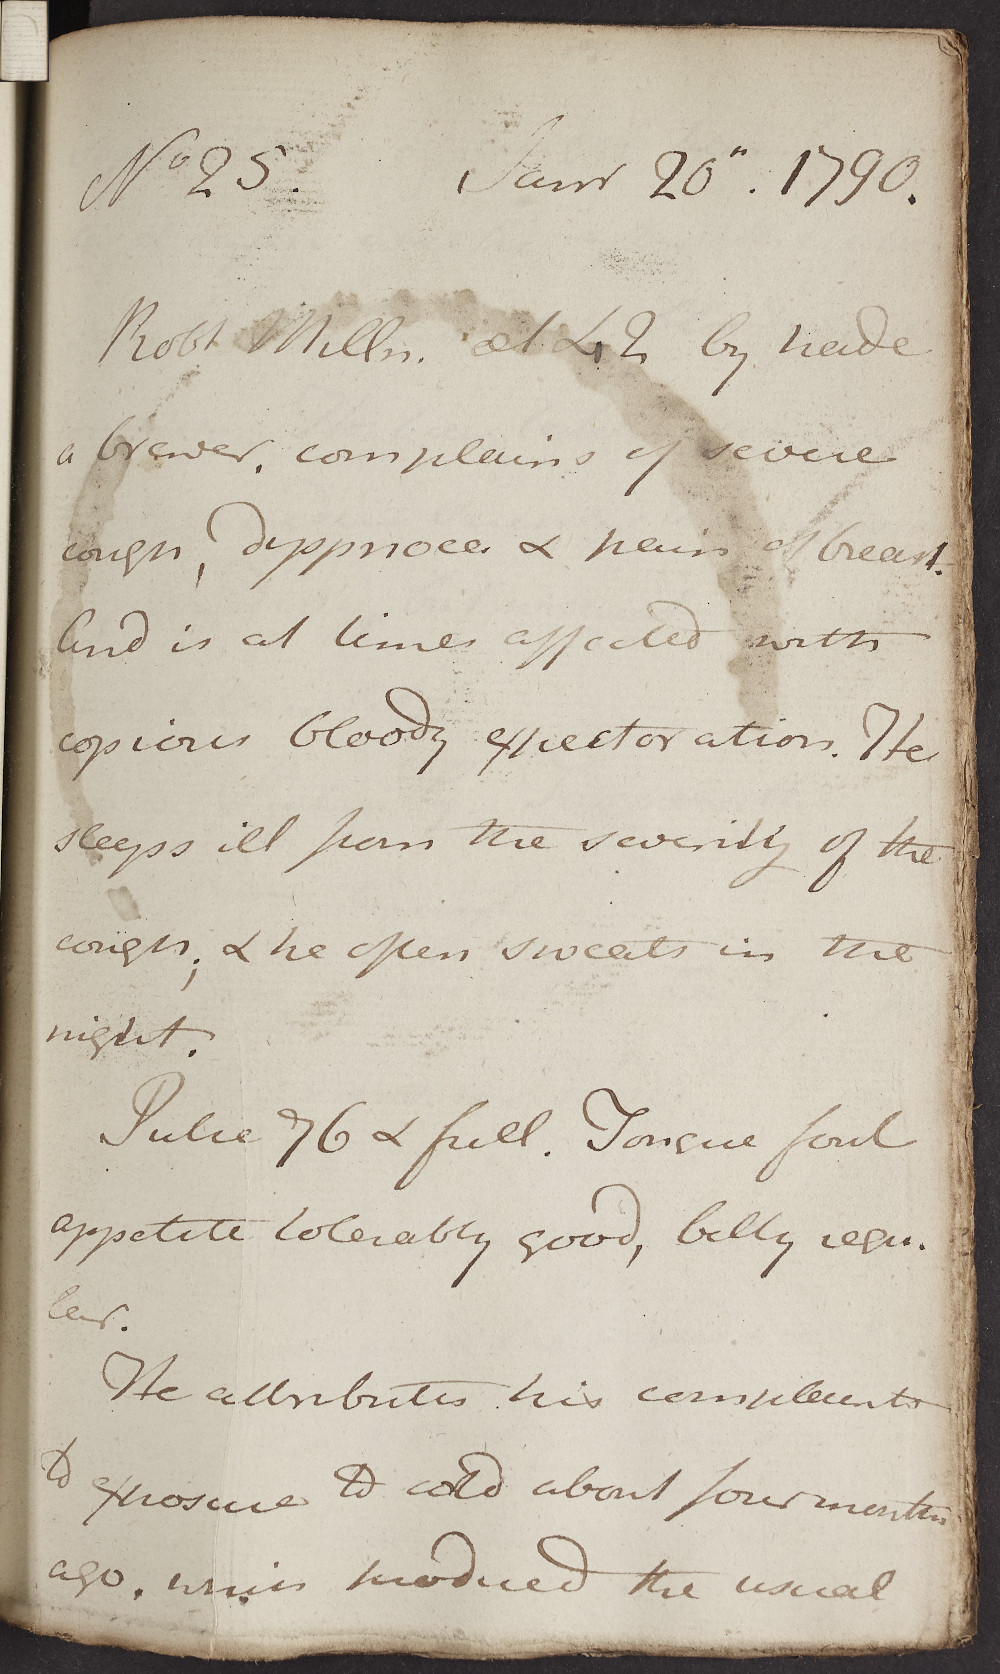 No 25. Janr 20". 1790.
Robt Milln. æt 42 by trade
a brewer, complains of severe
cough, dyspnoea & pain of breast.
And is at times affected with
copious bloody expectoration. He
sleeps ill from the severity of the
cough; & he often sweats in the
night.
Pulse 76 & full. Tongue foul
appetite tolerably good, belly regu.
lar.
He attributes his complaints
to exposure to cold about four months
ago. which produced the usual